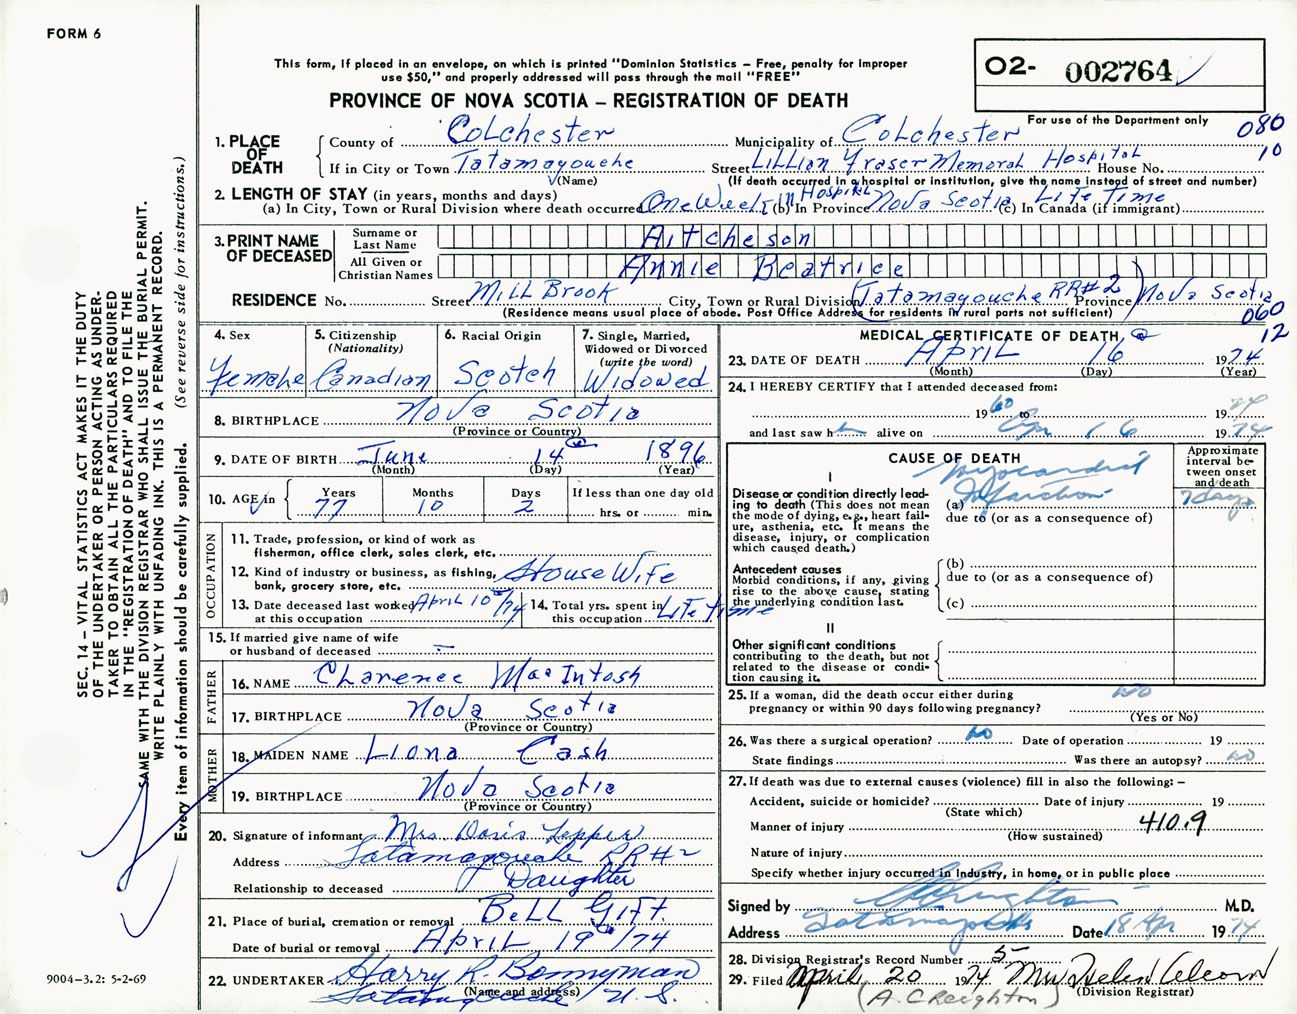 FORM 6
This form, if placed in an envelope, on which is printed "Dominion Statistics – Free, penalty for improper
use $50," and properly addressed will pass through the mail "FREE"
PROVINCE OF NOVA SCOTIA – REGISTRATION OF DEATH
O2- 002764
For use of the Department only
080
10
1. PLACE OF DEATH
County of Colchester Municipality of Colchester
If in City or Town Tatamagouche Street Lillian Fraser Memorial Hospital House No.
(Name) (If death occurred in a hospital or institution, give the name instead of street and number)
2. LENGTH OF STAY (in years, months and days)
(a) In City, Town or Rural Division where death occurred One Week in Hospital (b) In Province Nova Scotia (c) In Canada (if immigrant) Life Time
3. PRINT NAME OF DECEASED
Surname or Last Name Aitcheson
All Given or Christian Names Annie Beatrice
RESIDENCE No. Street Mill Brook City, Town or Rural Division (Tatamagouche RR#2) Province Nova Scotia
(Residence means usual place of abode. Post Office Address for residents in rural parts not sufficient)
060
12
4. Sex Female
5. Citizenship (Nationality) Canadian
6. Racial Origin Scotch
7. Single, Married, Widowed or Divorced (write the word) Widowed
8. BIRTHPLACE Nova Scotia
(Province or Country)
9. DATE OF BIRTH June 14 1896
(Month) (Day) (Year)
10. AGE in Years 77 Months 10 Days 2 If less than one day old hrs. or min.
OCCUPATION
11. Trade, profession, or kind of work as
fisherman, office clerk, sales clerk, etc.
12. Kind of industry or business, as fishing,
bank, grocery store, etc. House Wife
13. Date deceased last worked at this occupation April 10/74
14. Total yrs. spent in this occupation Life time
15. If married give name of wife
or husband of deceased –
FATHER
16. NAME Clarence MacIntosh
17. BIRTHPLACE Nova Scotia
(Province or Country)
MOTHER
18. MAIDEN NAME Liona Cash
19. BIRTHPLACE Nova Scotia
(Province or Country)
20. Signature of informant Mrs Doris Tepper
Address Tatamagouche RR#2
Relationship to deceased Daughter
21. Place of burial, cremation or removal Bell Gift.
Date of burial or removal April 19/74
22. UNDERTAKER Harry R. Bonnyman
(Name and address)
Tatamagouche N.S.
MEDICAL CERTIFICATE OF DEATH
23. DATE OF DEATH April 16 1974
(Month) (Day) (Year)
24. I HEREBY CERTIFY that I attended deceased from:
1960 to 1974
and last saw h alive on Apr 16 1974
CAUSE OF DEATH
Approximate interval between onset and death
I
Disease or condition directly lead-
ing to death (This does not mean
the mode of dying, e.g., heart fail-
ure, asthenia, etc. It means the
disease, injury, or complication
which caused death.)
(a) Myocardial Infarction 7 days
due to (or as a consequence of)
Antecedent causes
Morbid conditions, if any, giving
rise to the above cause, stating
the underlying condition last.
(b)
due to (or as a consequence of)
(c)
II
Other significant conditions
contributing to the death, but not
related to the disease or condi-
tion causing it.
25. If a woman, did the death occur either during
pregnancy or within 90 days following pregnancy? no
(Yes or No)
26. Was there a surgical operation? no Date of operation 19
State findings Was there an autopsy? no
27. If death was due to external causes (violence) fill in also the following: –
Accident, suicide or homicide? Date of injury 19
(State which)
Manner of injury 410.9
(How sustained)
Nature of injury
Specify whether injury occurred in industry, in home, or in public place
Signed by A C Creighton M.D.
Address Tatamagouche Date 18 Apr 1974
28. Division Registrar's Record Number 5
29. Filed April 20 1974 Mrs Helen
(Division Registrar)
(A. Creighton)
SEC. 14 – VITAL STATISTICS ACT MAKES IT THE DUTY
OF THE UNDERTAKER OR PERSON ACTING AS UNDER-
TAKER TO OBTAIN ALL THE PARTICULARS REQUIRED
IN THE "REGISTRATION OF DEATH" AND TO FILE THE
SAME WITH THE DIVISION REGISTRAR WHO SHALL ISSUE THE BURIAL PERMIT.
WRITE PLAINLY WITH UNFADING INK. THIS IS A PERMANENT RECORD.
Every item of information should be carefully supplied. (See reverse side for instructions.)
9004-3.2: 5-2-69